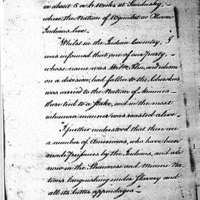 or about 5 or 6 Weeks at Sandusky,
where the Nation of Wyandots or Huron
Indians live.
"Whilst in the Indian Country, I
was informed that one of our Party,
whose name was
on a decision, had fallen to the Cherokees
was carried to the Nation of
there tied to a Stake, and in the most
inhuman manner was roasted alive.
"I further understood that there are
a number of Americans, who have been
made prisoners by the Indians, and also
now in the Shawanese and Mimne Na-
tions languishing under Slavery and
all its bitter appendages"